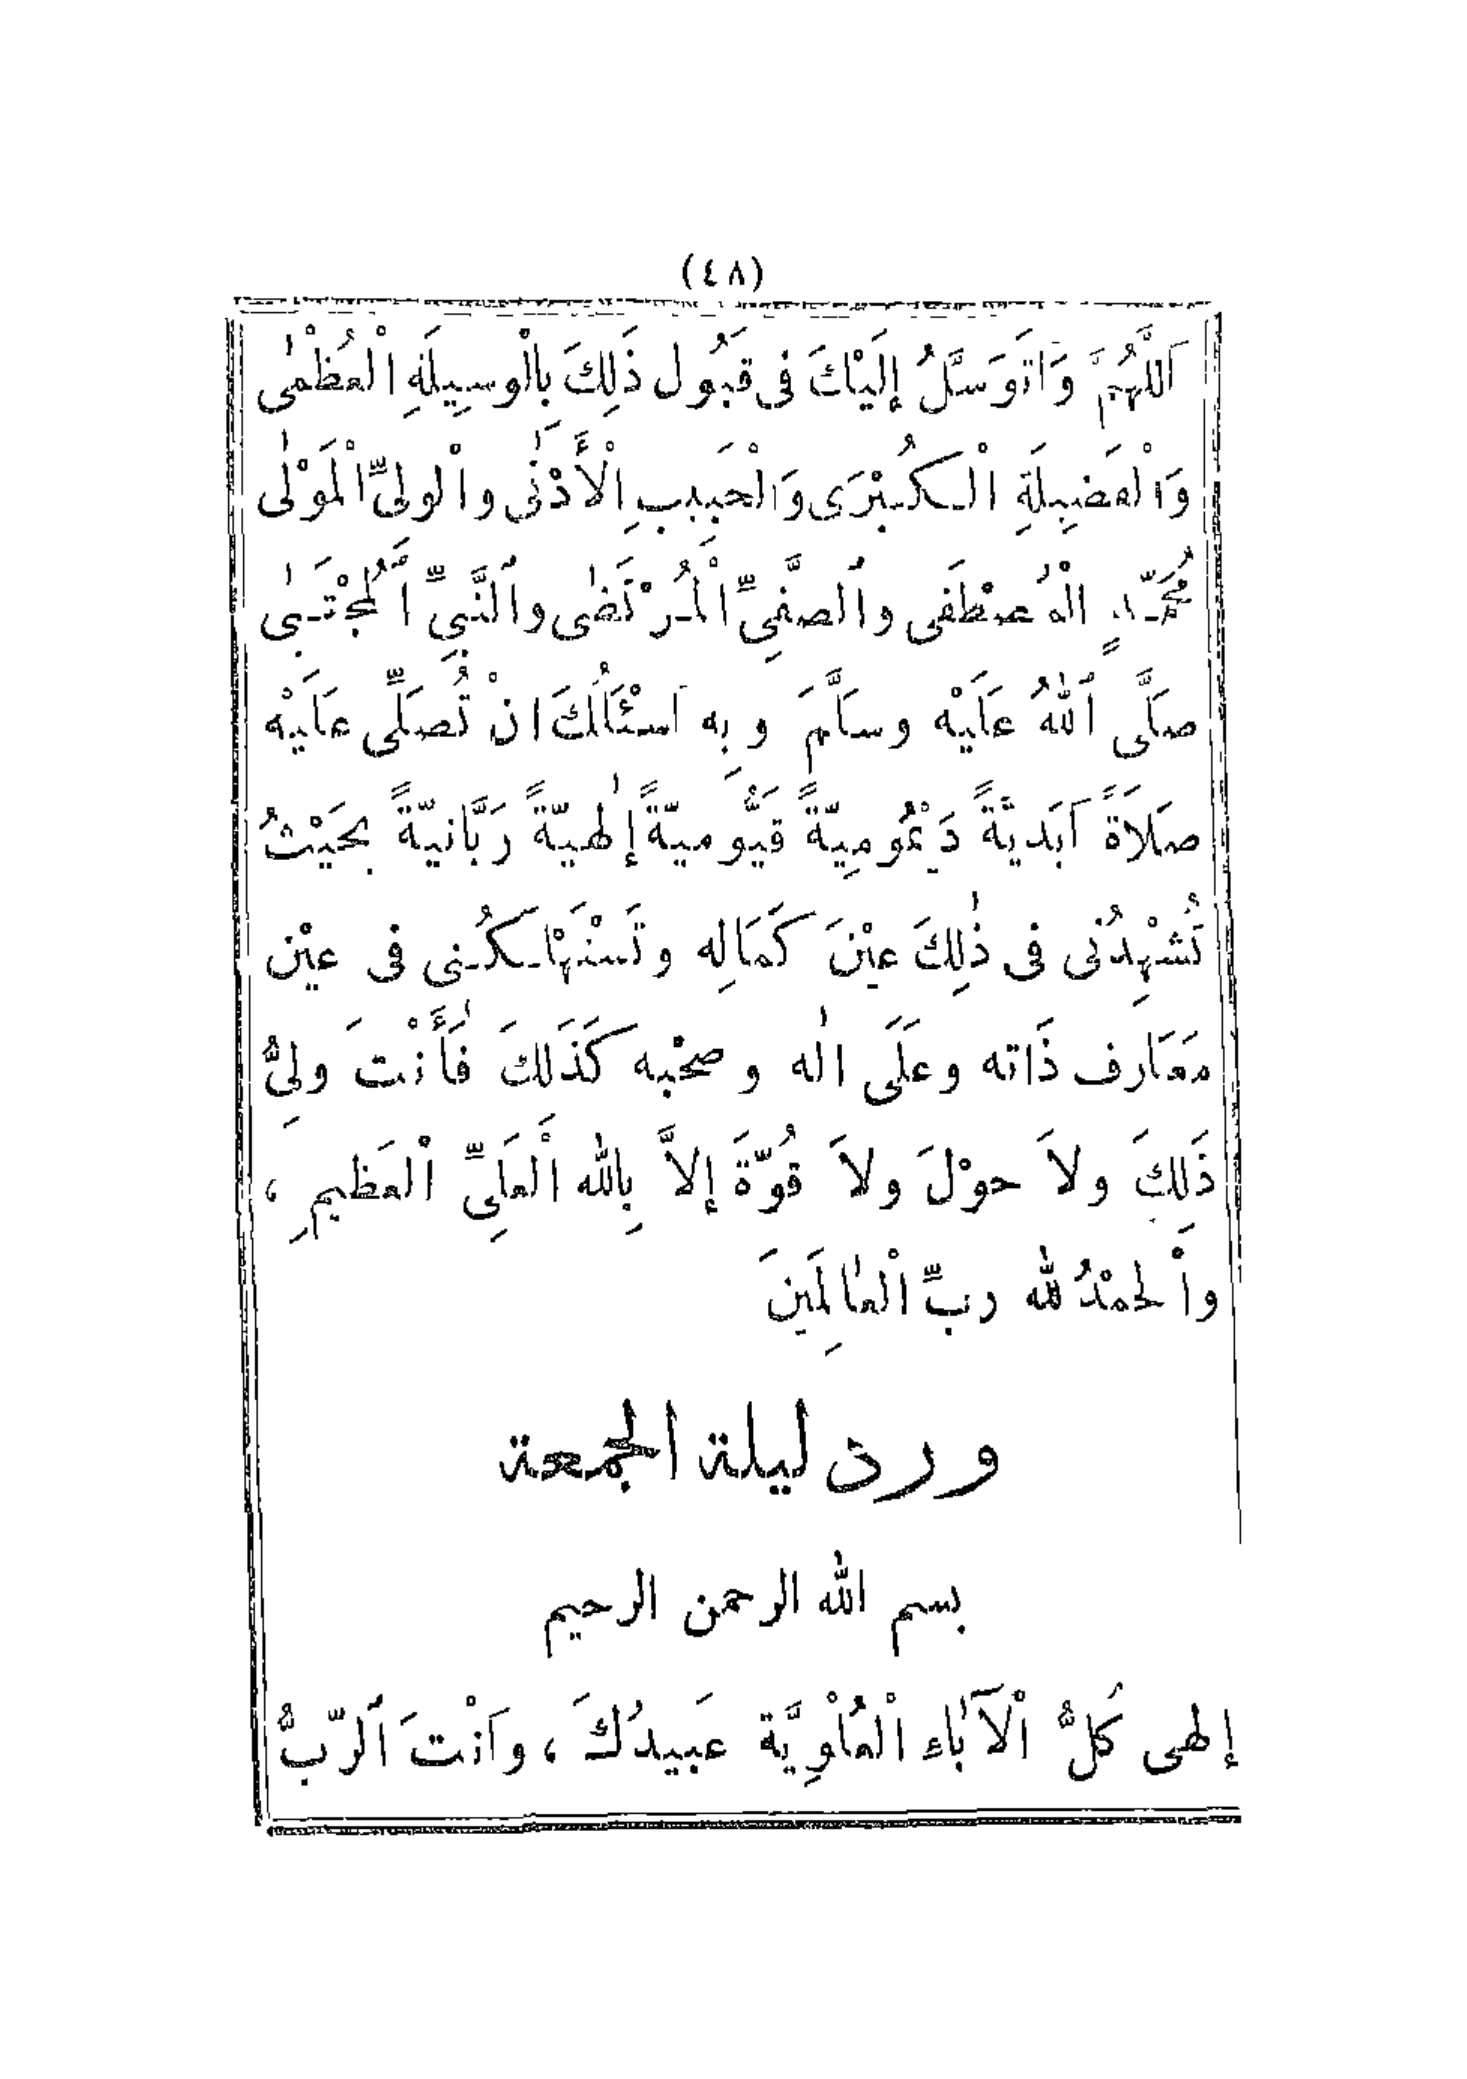 (٤٨)
اَللّٰهُمَّ وَاَتَوَسَّلُ إِلَيْكَ فى قَبُول ذَلِكَ بِالْوسِيلَةِ الْعُظْمٰى
وَالْفَضِيلَةِ الْكُبْرَى وَالْحَبِيبِ الْأَدْنٰى والْولىِّ الْمَوْلٰى
مُحَمَّدٍ الْمُصْطَفَى والصفىِّ الْمُرْتَضٰى والنَّبىِّ الْمُجْتَبٰى
صَلَّى اللهُ عَلَيْه وسَلَّمَ وبِه اَسْئَلُكَ انْ تُصَلِّى عَلَيْه
صَلَاةً اَبَديَّةً دَيْمُومِيّةً قَيُّوميّةً إلٰهيّةً رَبَّانيّةً بِحَيْثُ
تُشْهِدُنى فى ذٰلِكَ عيْنَ كَمَالِه وتَسْتَهْلِكُنى فى عيْن
مَعَارف ذَاته وعَلَى اٰله وصحْبه كَذَلكَ فَأَنْتَ ولِىُّ
ذَلِكَ ولاَ حوْلَ ولاَ قُوّةَ إلاَّ بِالله الْعَلِىِّ الْعَظيمِ ،
والْحمْدُ لله ربِّ الْعَالَمِينَ
ورد ليلة الجمعة
بسم الله الرحمن الرحيم
إلهى كُلُّ الْآبَاء الْعُلْوِيَّة عَبيدُكَ ، وَاَنْتَ الرّبُّ